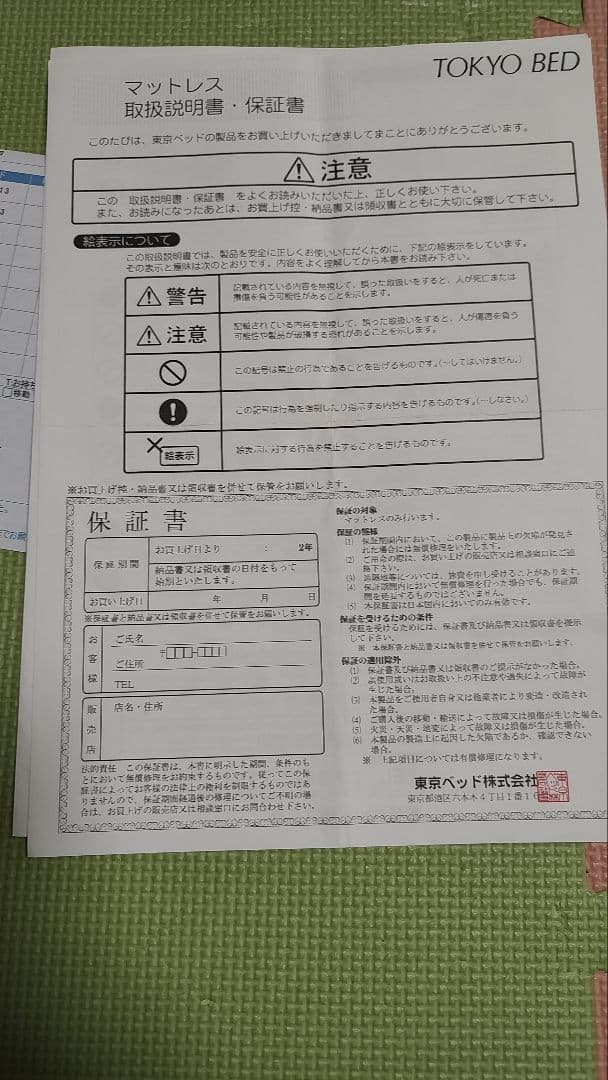 TOKYO BED
マットレス
取扱説明書・保証書
このたびは、東京ベッドの製品をお買い上げいただきましてまことにありがとうございます。
注意
この 取扱説明書・保証書 をよくお読みいただいた上、正しくお使い下さい。
また、お読みになったあとは、お買上げ控・納品書又は領収書とともに大切に保管して下さい。
絵表示について
この取扱説明書では、製品を安全に正しくお使いいただくために、下記の絵表示をしています。
その表示と意味は次のとおりです。内容をよく理解してから本書をお読み下さい。
警告
記載されている内容を無視して、誤った取扱いをすると、人が死亡または
重傷を負う可能性があることを示します。
注意
記載されている内容を無視して、誤った取扱いをすると、人が傷害を負う
可能性や製品が破損する恐れがあることを示します。
この記号は禁止の行為であることを告げるものです。(…してはいけません。)
この記号は行為を強制したり指示する内容を告げるものです。(…しなさい。)
絵表示
絵表示に対する行為を禁止することを告げるものです。
※お買上げ控・納品書又は領収書を併せて保管をお願いします。
保証書
保証期間
お買上げ日より : 2年
納品書又は領収書の日付をもって
始期といたします。
お買い上げ日 年 月 日
※保証書と納品書又は領収書を併せて保管をお願いします。
お客様
ご氏名
〒
ご住所
TEL
販売店
店名・住所
法的責任 この保証書は、本書に明示した期間、条件のも
とにおいて無償修理をお約束するものです。従ってこの保
証書によってお客様の法律上の権利を制限するものではあ
りませんので、保証期間経過後の修理についてご不明の場
合は、お買上げの販売店又は相談窓口にお問合わせ下さい。
保証の対象
マットレスのみ行います。
保証の態様
(1) 保証期間内において、この製品に製品上の欠陥が発見さ
れた場合には無償修理をいたします。
(2) ご用命の際は、お買い上げの販売店又は相談窓口にご連
絡下さい。
(3) 遠隔地等については、旅費を申し受けることがあります。
(4) 保証期間内において無償修理を行った場合でも、保証期
間を延長するものではございません。
(5) 本保証書は日本国内においてのみ有効です。
保証を受けるための条件
保証を受けるためには、保証書及び納品書又は領収書を提示
して下さい。
※ 本保証書と納品書又は領収書を併せて保管をお願いします。
保証の適用除外
(1) 保証書及び納品書又は領収書のご提示がなかった場合。
(2) お使用或いはお取扱い上の不注意や過失によって故障が
生じた場合。
(3) 本製品をご使用者自身又は他業者により変造・改造され
た場合。
(4) ご購入後の移動・輸送によって故障又は損傷が生じた場合。
(5) 火災・天災・地変によって故障又は損傷が生じた場合。
(6) 本製品の製造上に起因した欠陥であるか、確認できない
場合。
※ 上記項目については有償修理になります。
東京ベッド株式会社
東京都港区六本木4丁目1番1